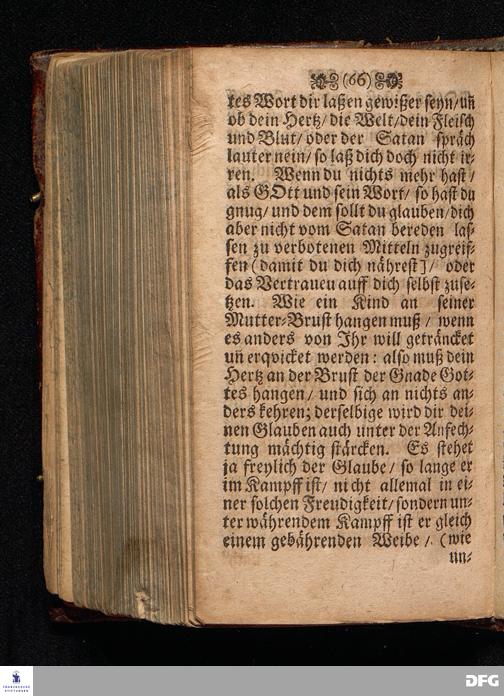 (66)
tes Wort dir laßen gewißer seyn/uñ
ob dein Hertz/ die Welt/dein Fleisch
und Blut/ oder der Satan spräch
lauter nein/ so laß dich doch nicht ir⸗
ren. Wenn du nichts mehr hast/
als GOtt und sein Wort/ so hast du
gnug/ und dem sollt du glauben/dich
aber nicht vom Satan bereden las⸗
sen zu verbotenen Mitteln zugreif⸗
fen (damit du dich nährest]/ oder
das Vertraueu auff dich selbst zuse⸗
tzen. Wie ein Kind an seiner
Mutter⸗Brust hangen muß/ wenn
es anders von Ihr will geträncket
uñ erqvicket werden: also muß dein
Hertz an der Brust der Gnade Got⸗
tes hangen/ und sich an nichts an⸗
ders kehren; derselbige wird dir dei⸗
nen Glauben auch unter der Anfech⸗
tung mächtig stärcken. Es stehet
ja freylich der Glaube/ so lange er
im Kampff ist/ nicht allemal in ei⸗
ner solchen Freudigkeit/ sondern un⸗
ter währendem Kampff ist er gleich
einem gebährenden Weibe/ (wie
un⸗
FRANCKESCHE
STIFTUNGEN
DFG